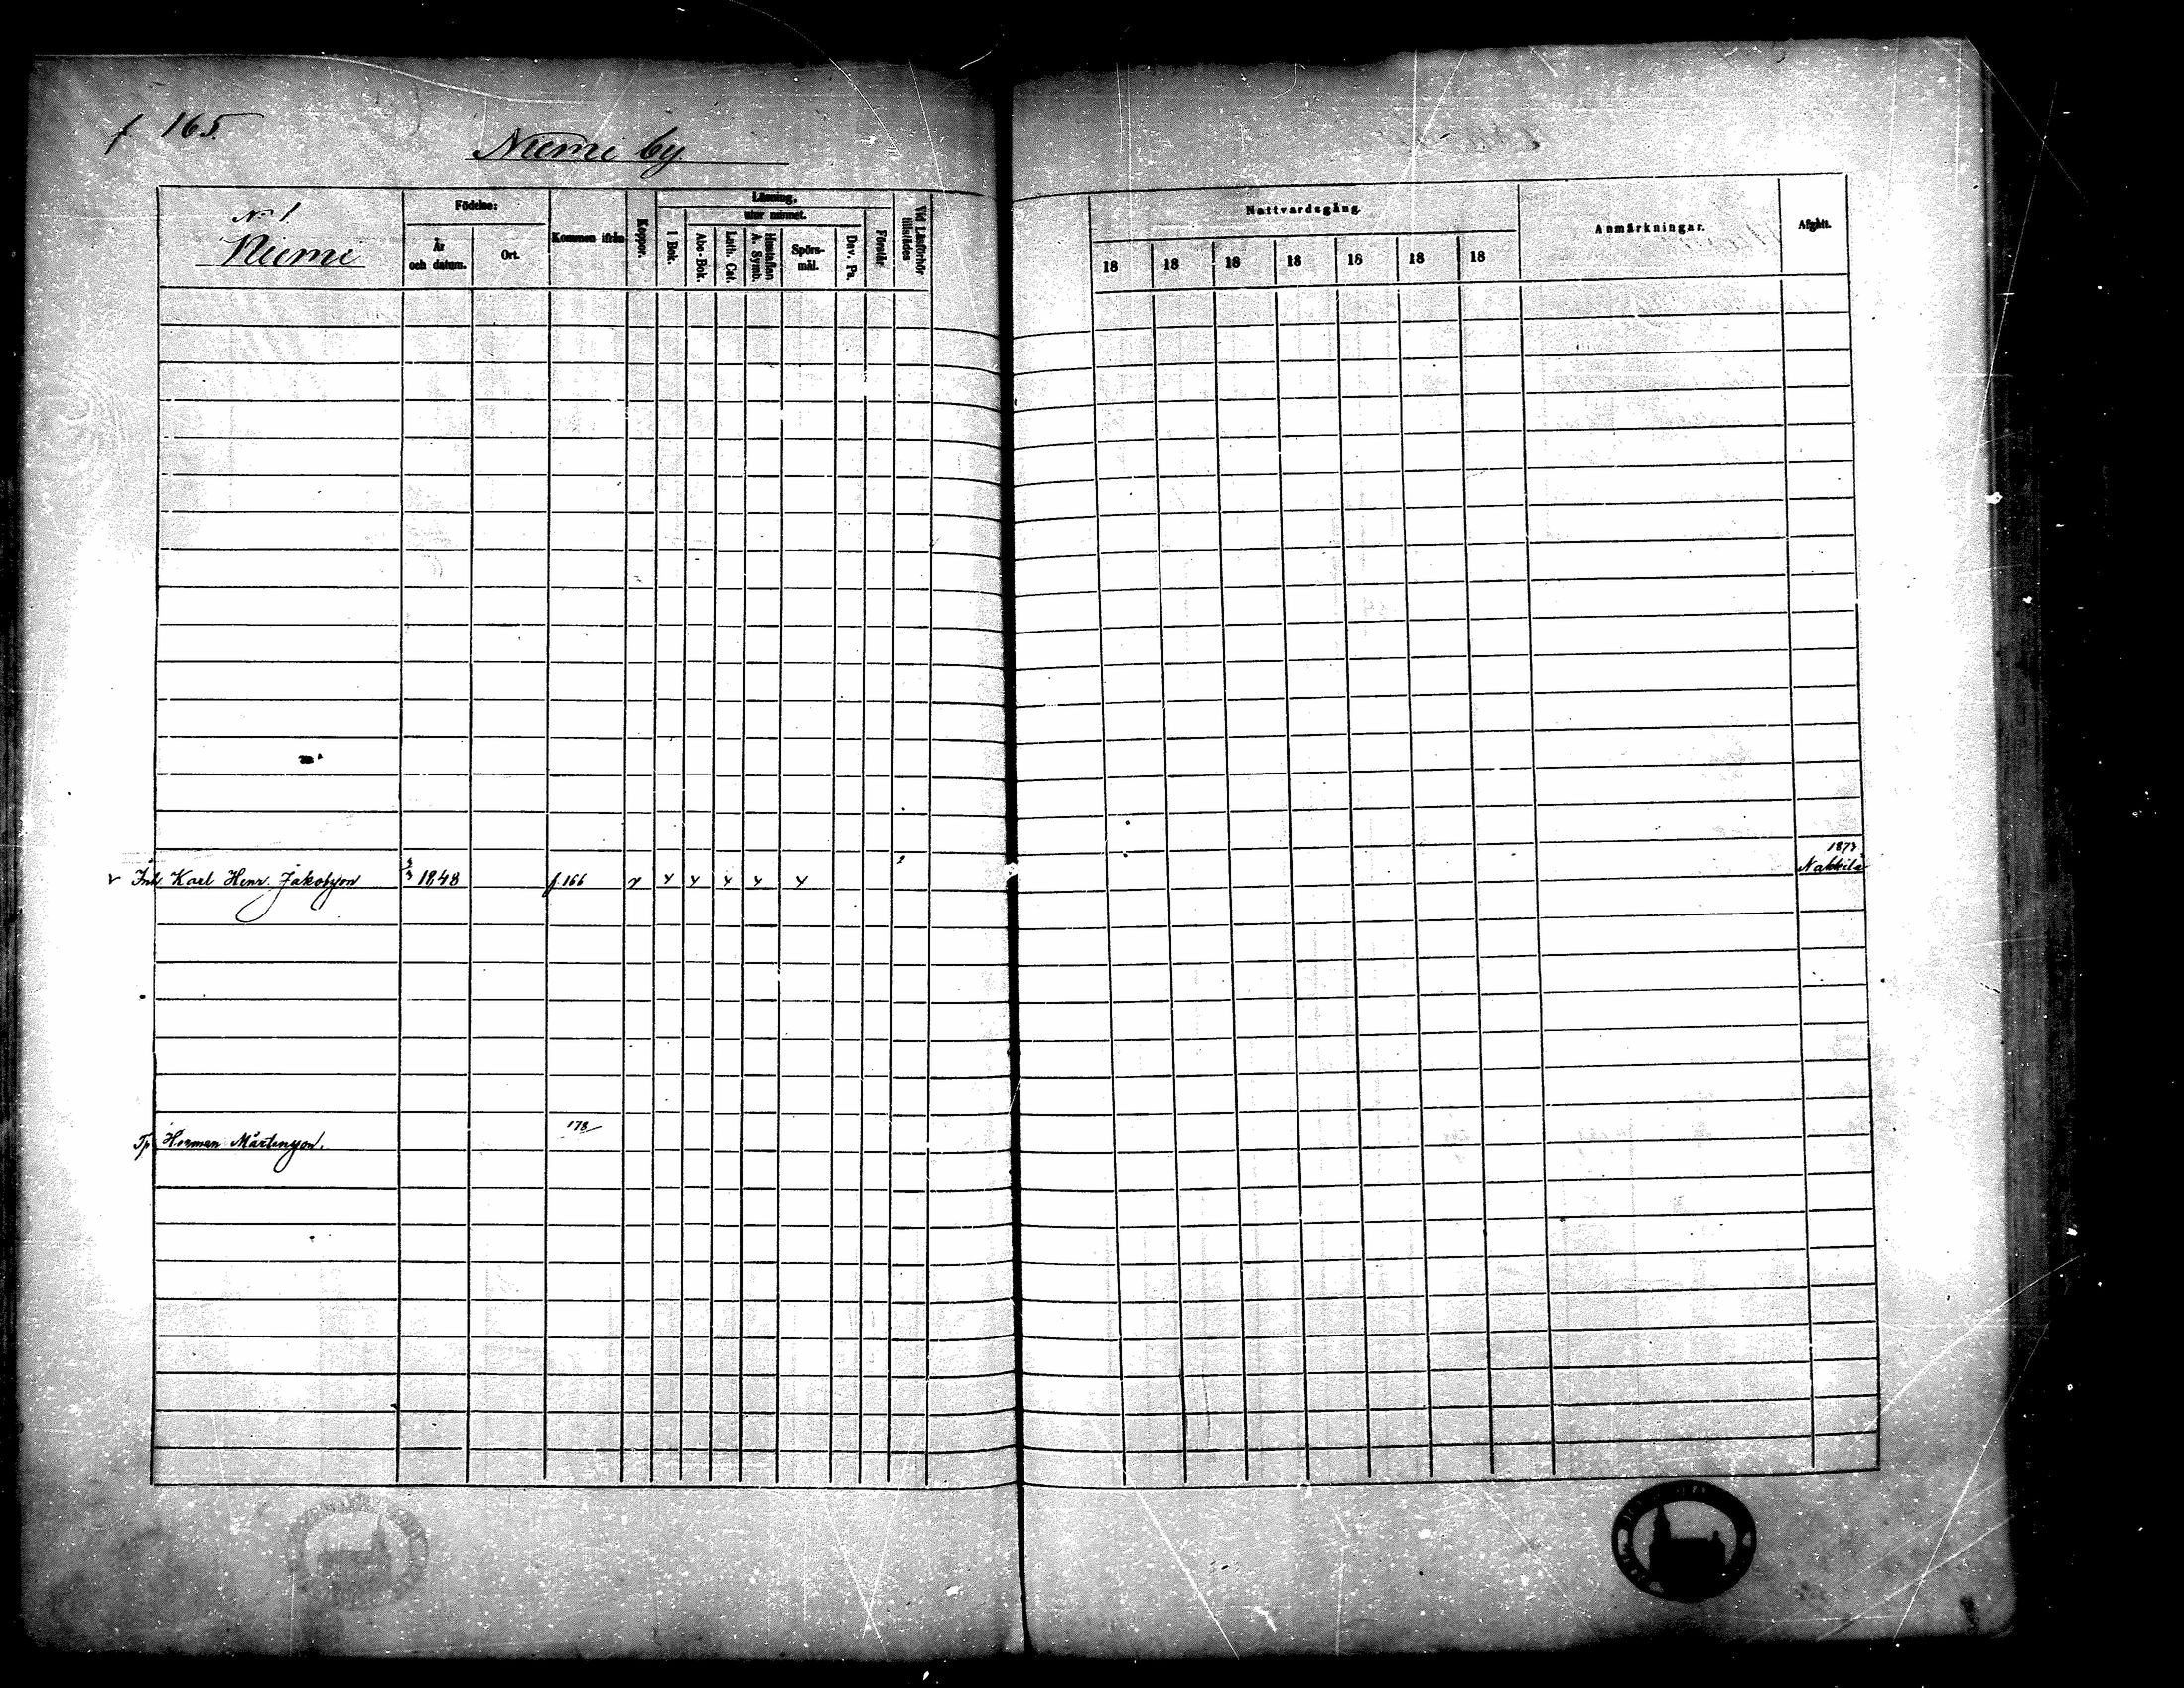 f 165.
Niemi by
No 1
Niemi
Födelse:
År
och datum.
Ort.
Kommen ifrån
Koppor.
Läsning,
utur minnet.
I Bok.
Abc-Bok.
Luth. Cat.
Hustaflan
A. Symb.
Spörs-
mål.
Dav. Ps.
Förstår
Vid Läsförhör
tillstädes
Nattvardsgång.
18 18 18 18 18 18 18
Anmärkningar.
Afgått.
1873
Inh. Karl Henr. Jakobsson 1848 f. 166 Nakkila
178
Tp Herman Mårtensson.